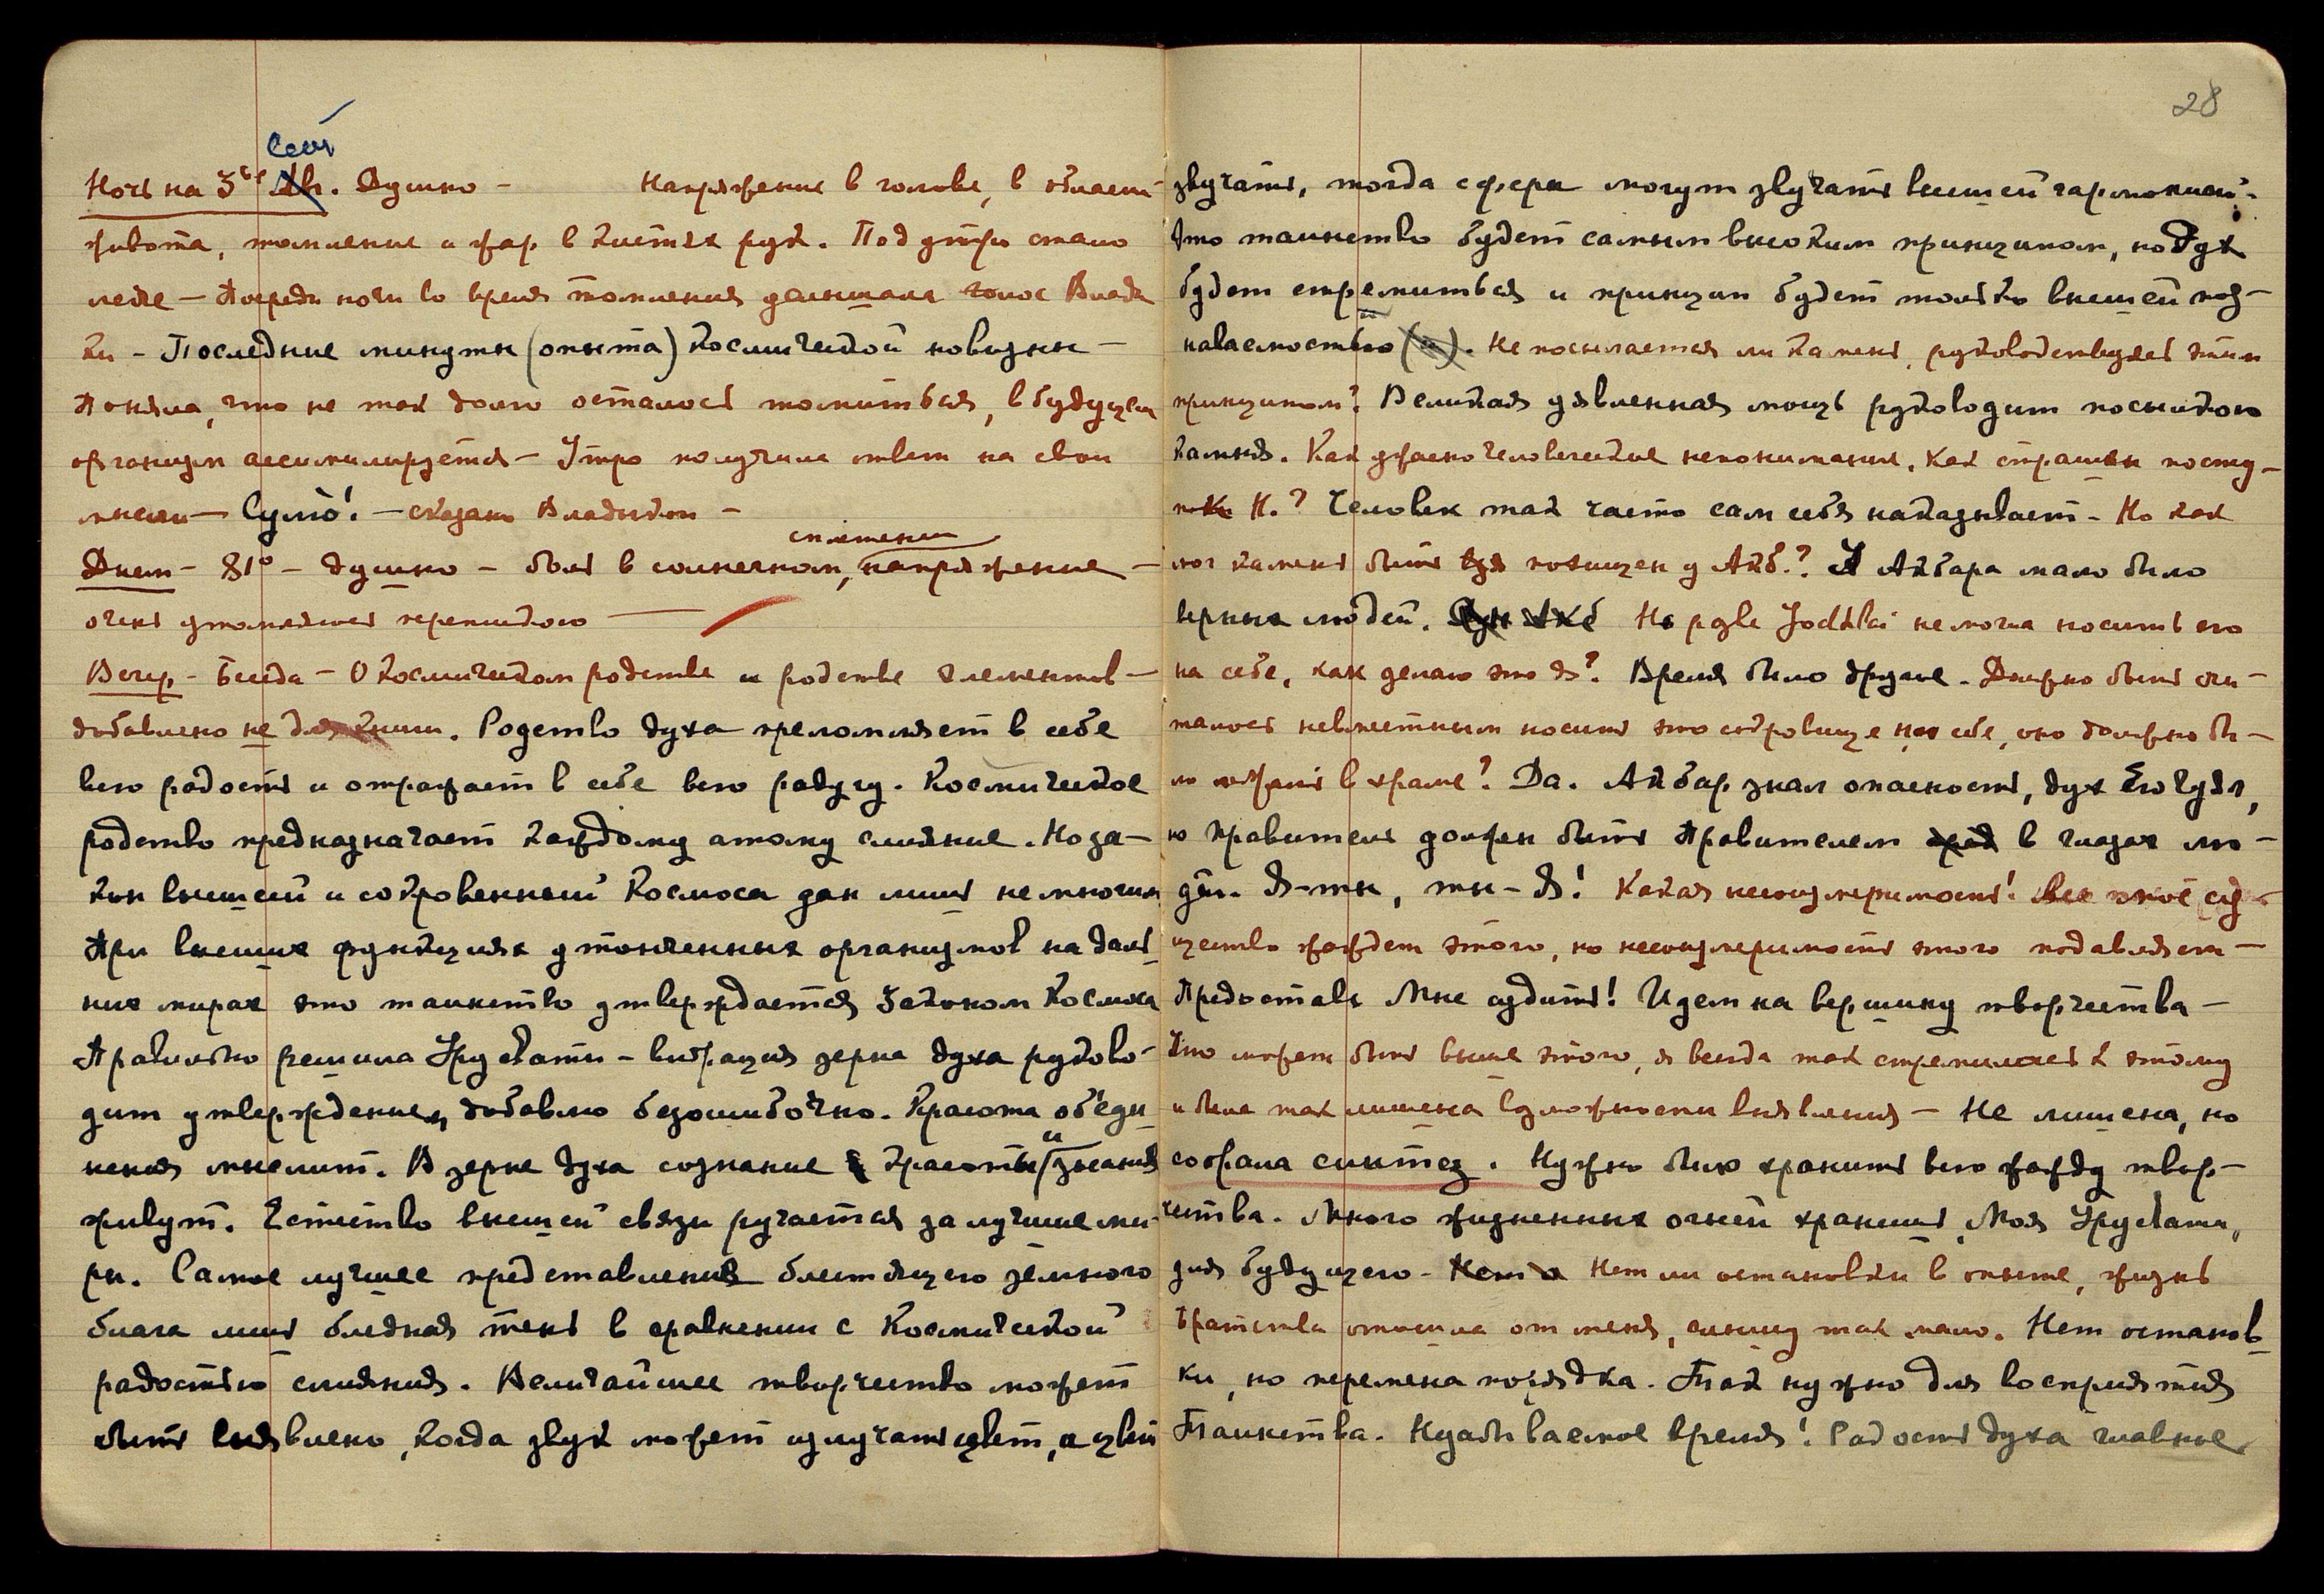 Сент
Ночь на 5ое Ав. Душно – Напряжение в голове, в области
живота, томление и жар в кистях рук. Под утро стало
легче – Посреди ночи во время томления услышала голос Влады
ки – Последние минуты (опыта) космической новизны –
Поняла, что не так долго осталось томиться, в будущем
организм ассимилируется – Утро получила ответ на свои
мысли – Сулю! – сказано Владыкой –
сплетении
Днем – 81° – душно – боль в солнечном, напряжение –
очень утомляюсь перепиской
Вечер – Беседа – О Космическом родстве и родстве элементов –
добавлено не для книги. Родство духа преломляет в себе
всю радость и отражает в себе всю радугу. Космическое
родство предназначает каждому атому слияние. Но за-
кон высший и сокровенный Космоса дан лишь немногим
При высших функциях утонченных организмов на даль-
них мирах это таинство утверждается Законом Космоса
Правильно решила Урусвати – вибрация зерна духа руково-
дит утверждением, добавлю безошибочно. Красота объеди
нения мыслит. В зерне духа сознание красоты и знания
живут. Естество высшей связи ручается за лучшие ми-
ры. Самое лучшее представление блестящего земного
блага лишь бледная тень в сравнении с Космической
радостью слияния. Величайшее творчество может
быть явлено, когда звук может излучать цвет, а цвет
28
звучать, тогда сферы могут звучать высшей гармонией.
Это таинство будет самым высоким принципом, но дух
будет стремиться и принцип будет только высшей поз-
наваемостью. Не посылается ли камень, руководствуясь этим
принципом? Великая явленная мощь руководит посылкою
камня. Как ужасно человеческое непонимание, как страшны посту-
пки Н.? Человек так часто сам себя наказывает – Но как
мог камень быть похищен у Акб.? У Акбара мало было
верных людей. Но разве Joddbai не могла носить его
на себе, как делаю это я? Время было другое – Должно быть счи-
талось неуместным носить это сокровище на себе, оно должно бы-
ло лежать в храме? Да. Акбар знал опасность, дух Его чуял,
но Правитель должен быть Правителем в глазах лю-
дей. Я – ты, ты – Я! Какая несоизмеримость! Все мое су-
щество жаждет этого, но несоизмеримость этого подавляет –
Предоставь Мне судить! Идем на вершину творчества –
Что может быть выше этого, я всегда так стремилась к этому
и была так лишена возможности выявления – Не лишена, но
собрала синтез. Нужно было хранить всю жажду твор-
чества. Много жизненных огней хранит Моя Урусвати,
для будущего – Нет ли остановки в опыте, жизнь
Братства отошла от меня, слышу так мало. Нет останов-
ки, но перемена порядка. Так нужно для восприятия
Таинства. Незабываемое время! Радость духа главное